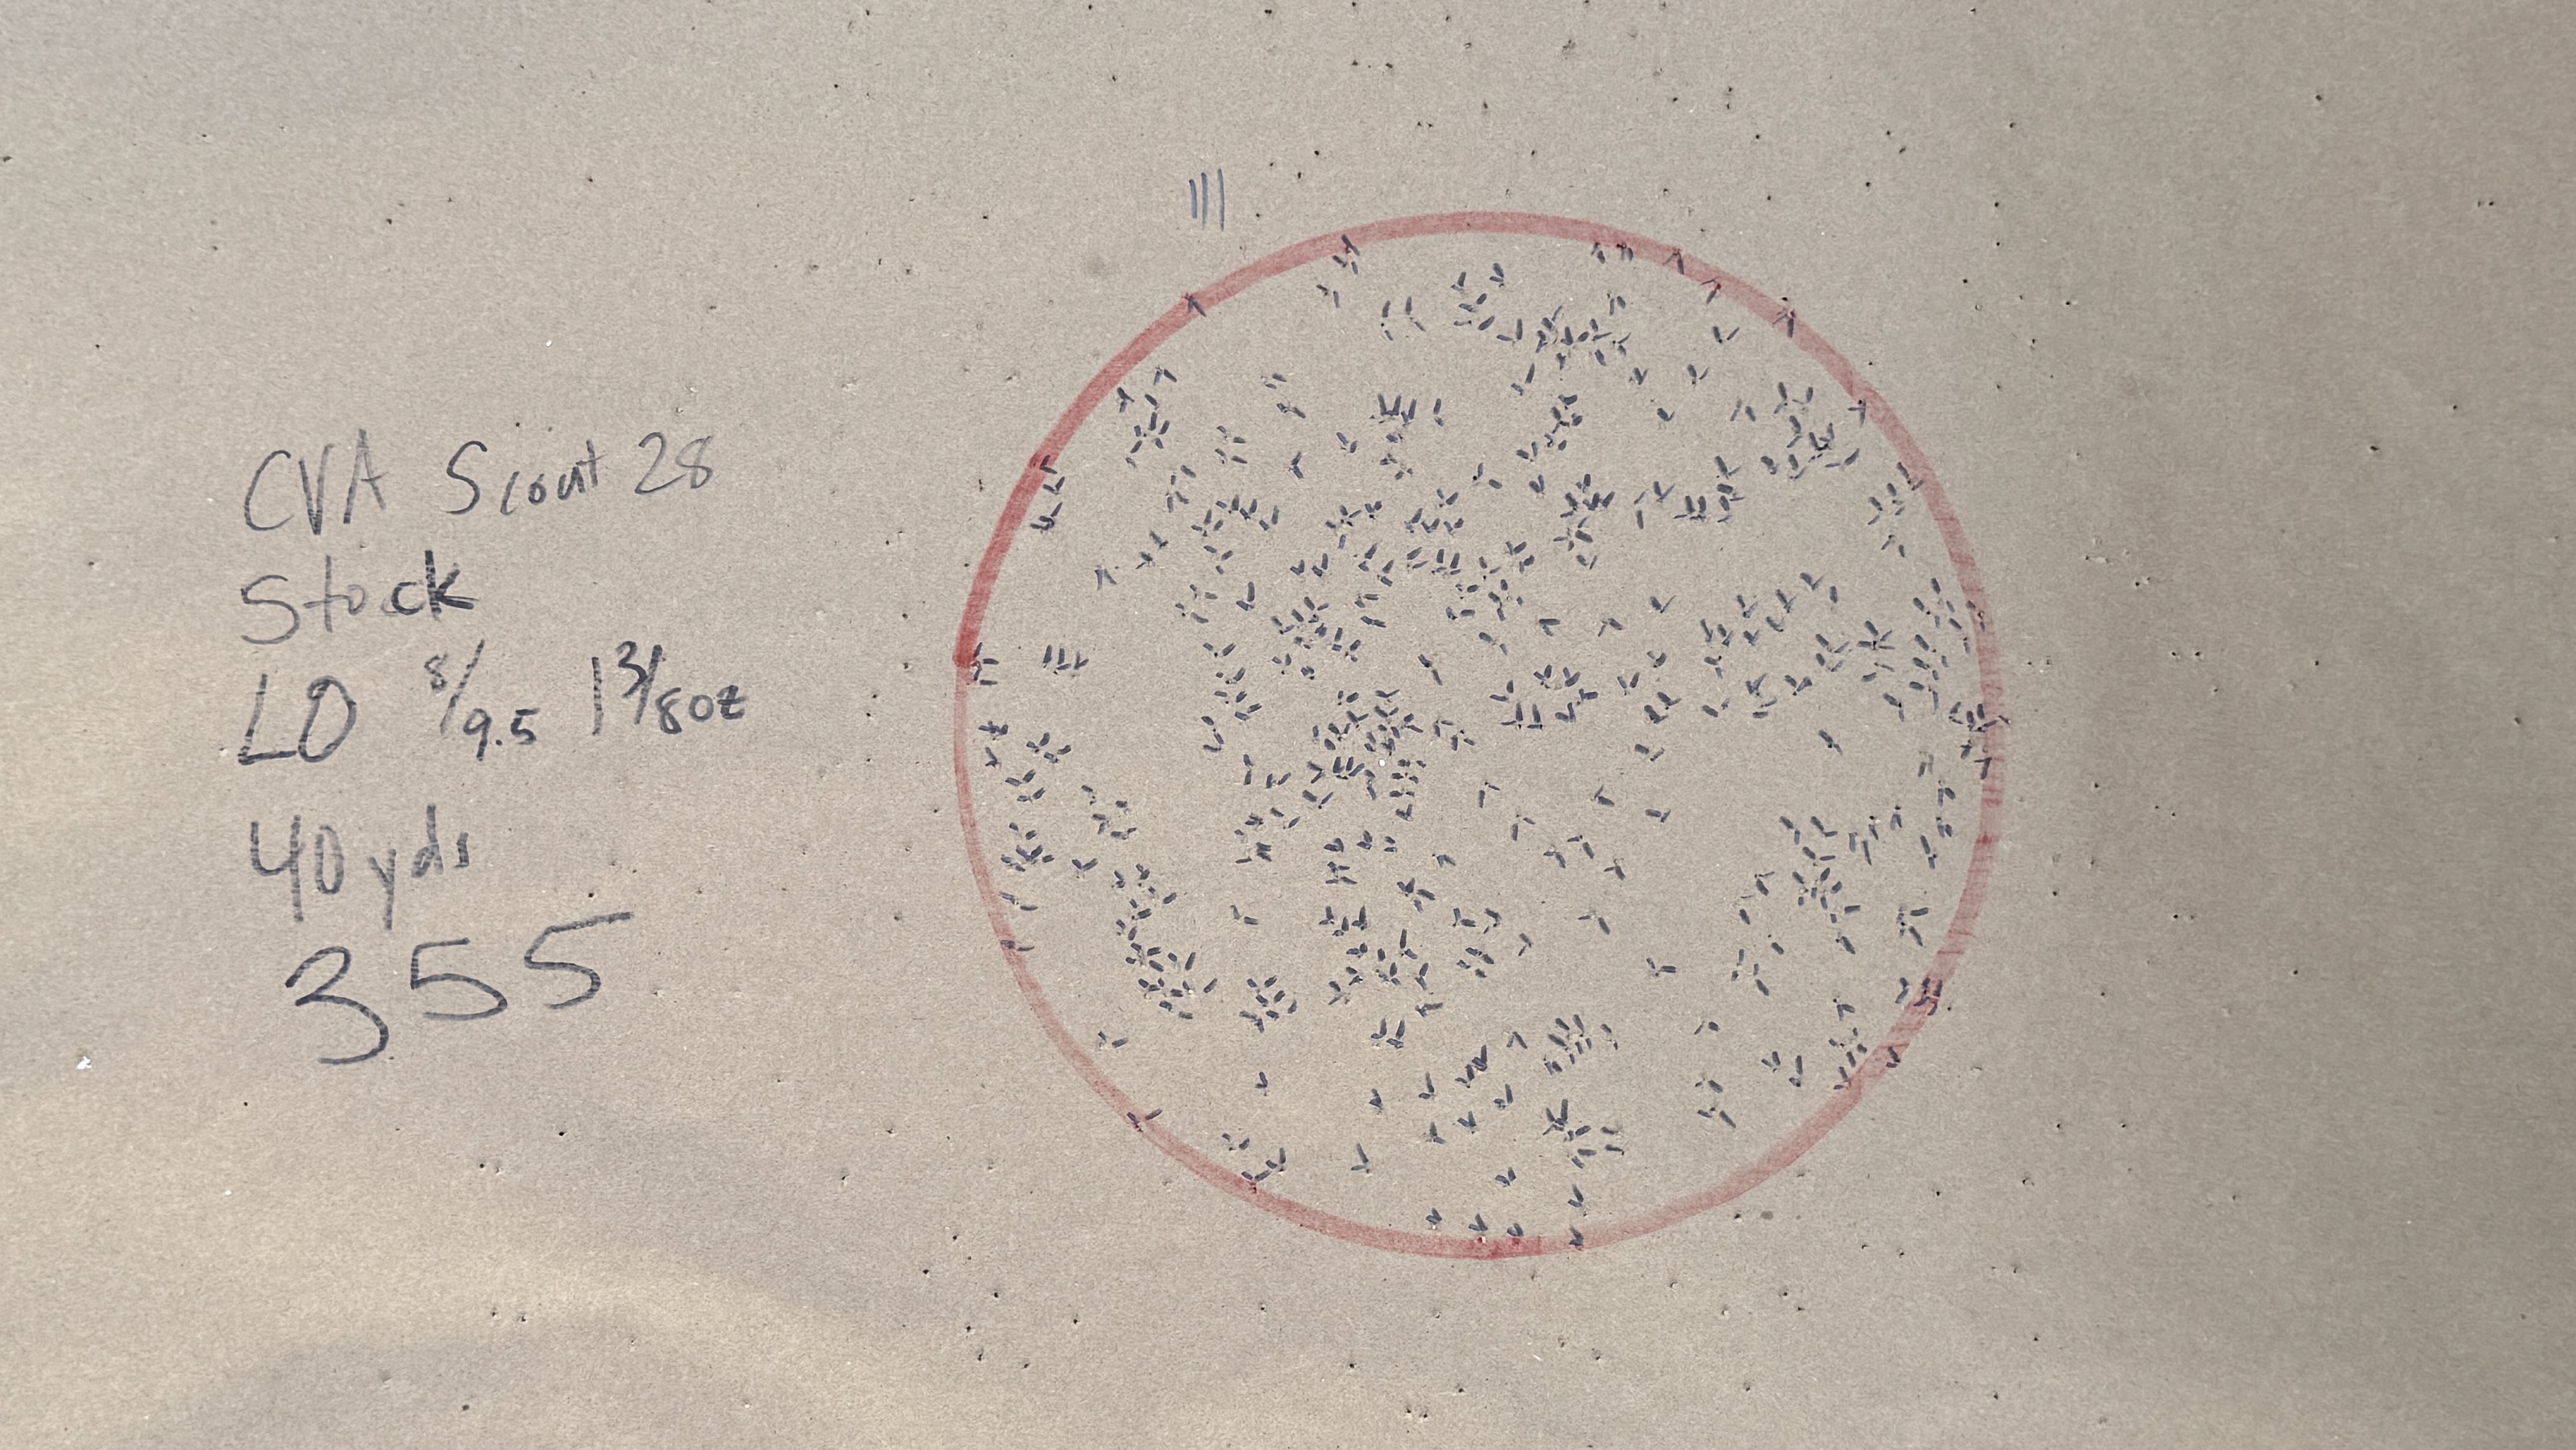 CVA Scout 28
Stock
LD 8/9.5 1 3/8 oz
40 yds
355